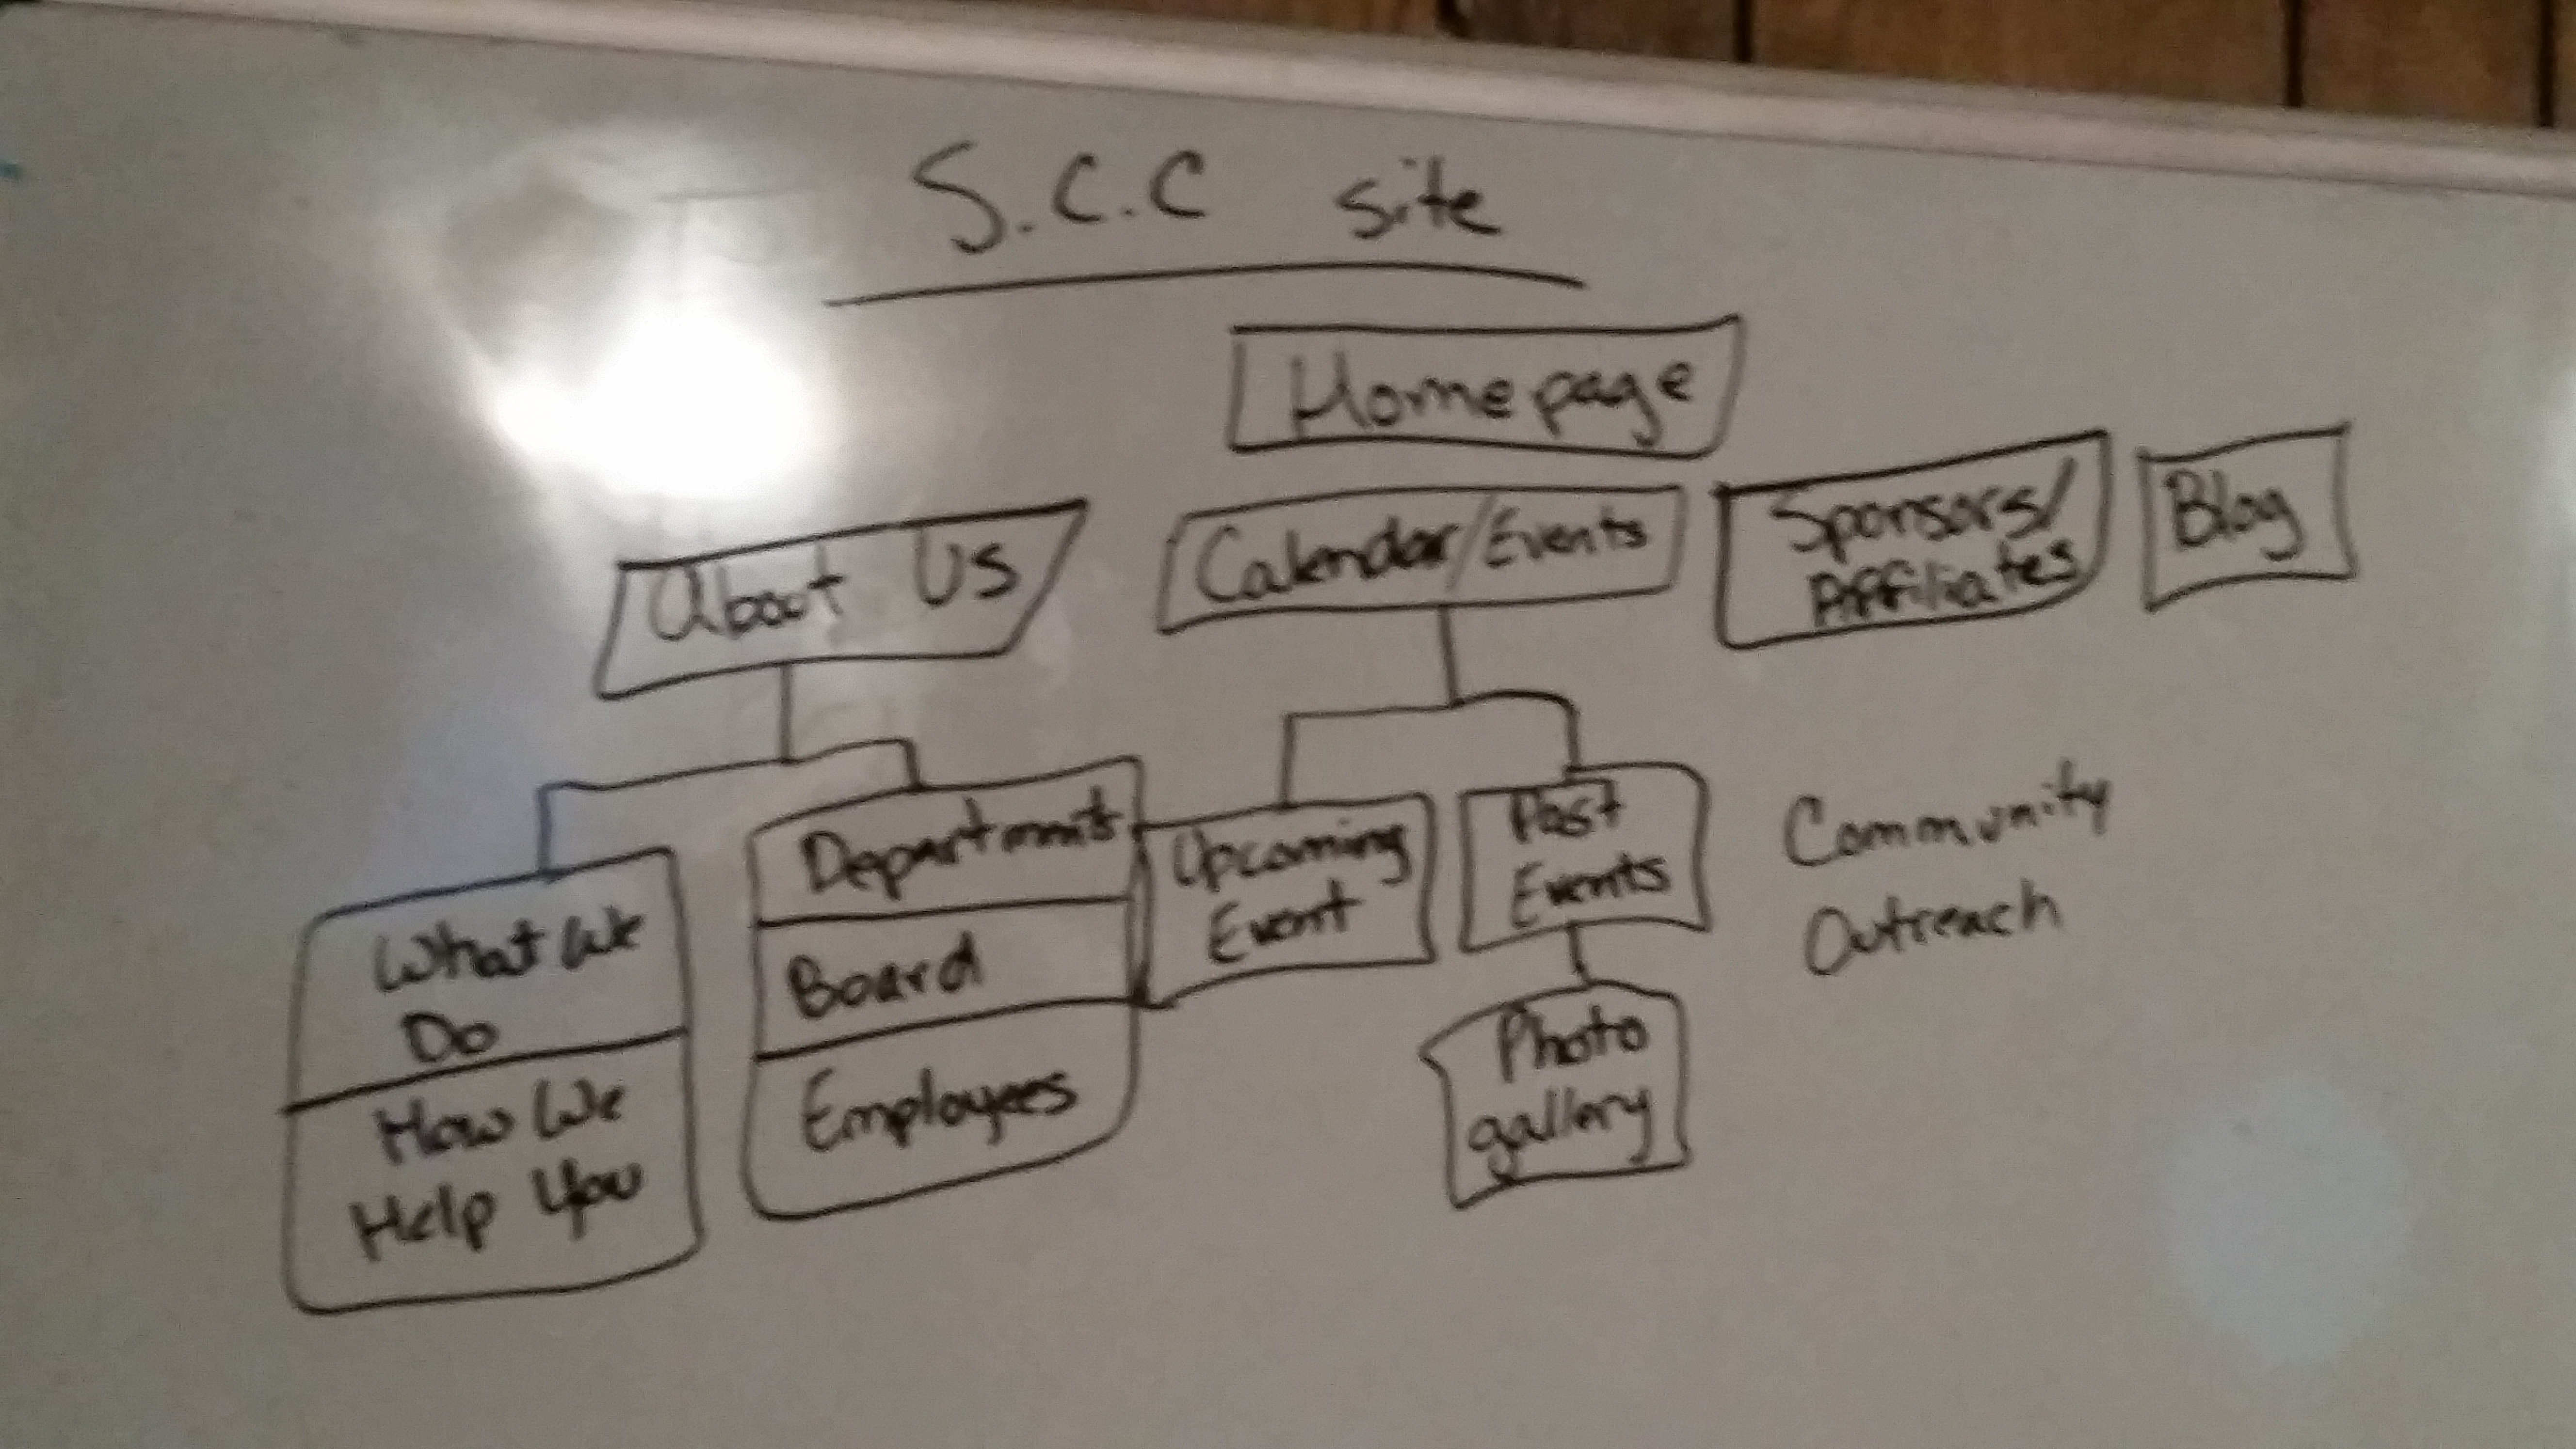 S.C.C site
Homepage
About Us
Calendar/Events
Sponsors/
Affiliates
Blog
What We
Do
How We
Help You
Departments
Board
Employees
Upcoming
Event
Past
Events
Photo
gallery
Community
Outreach